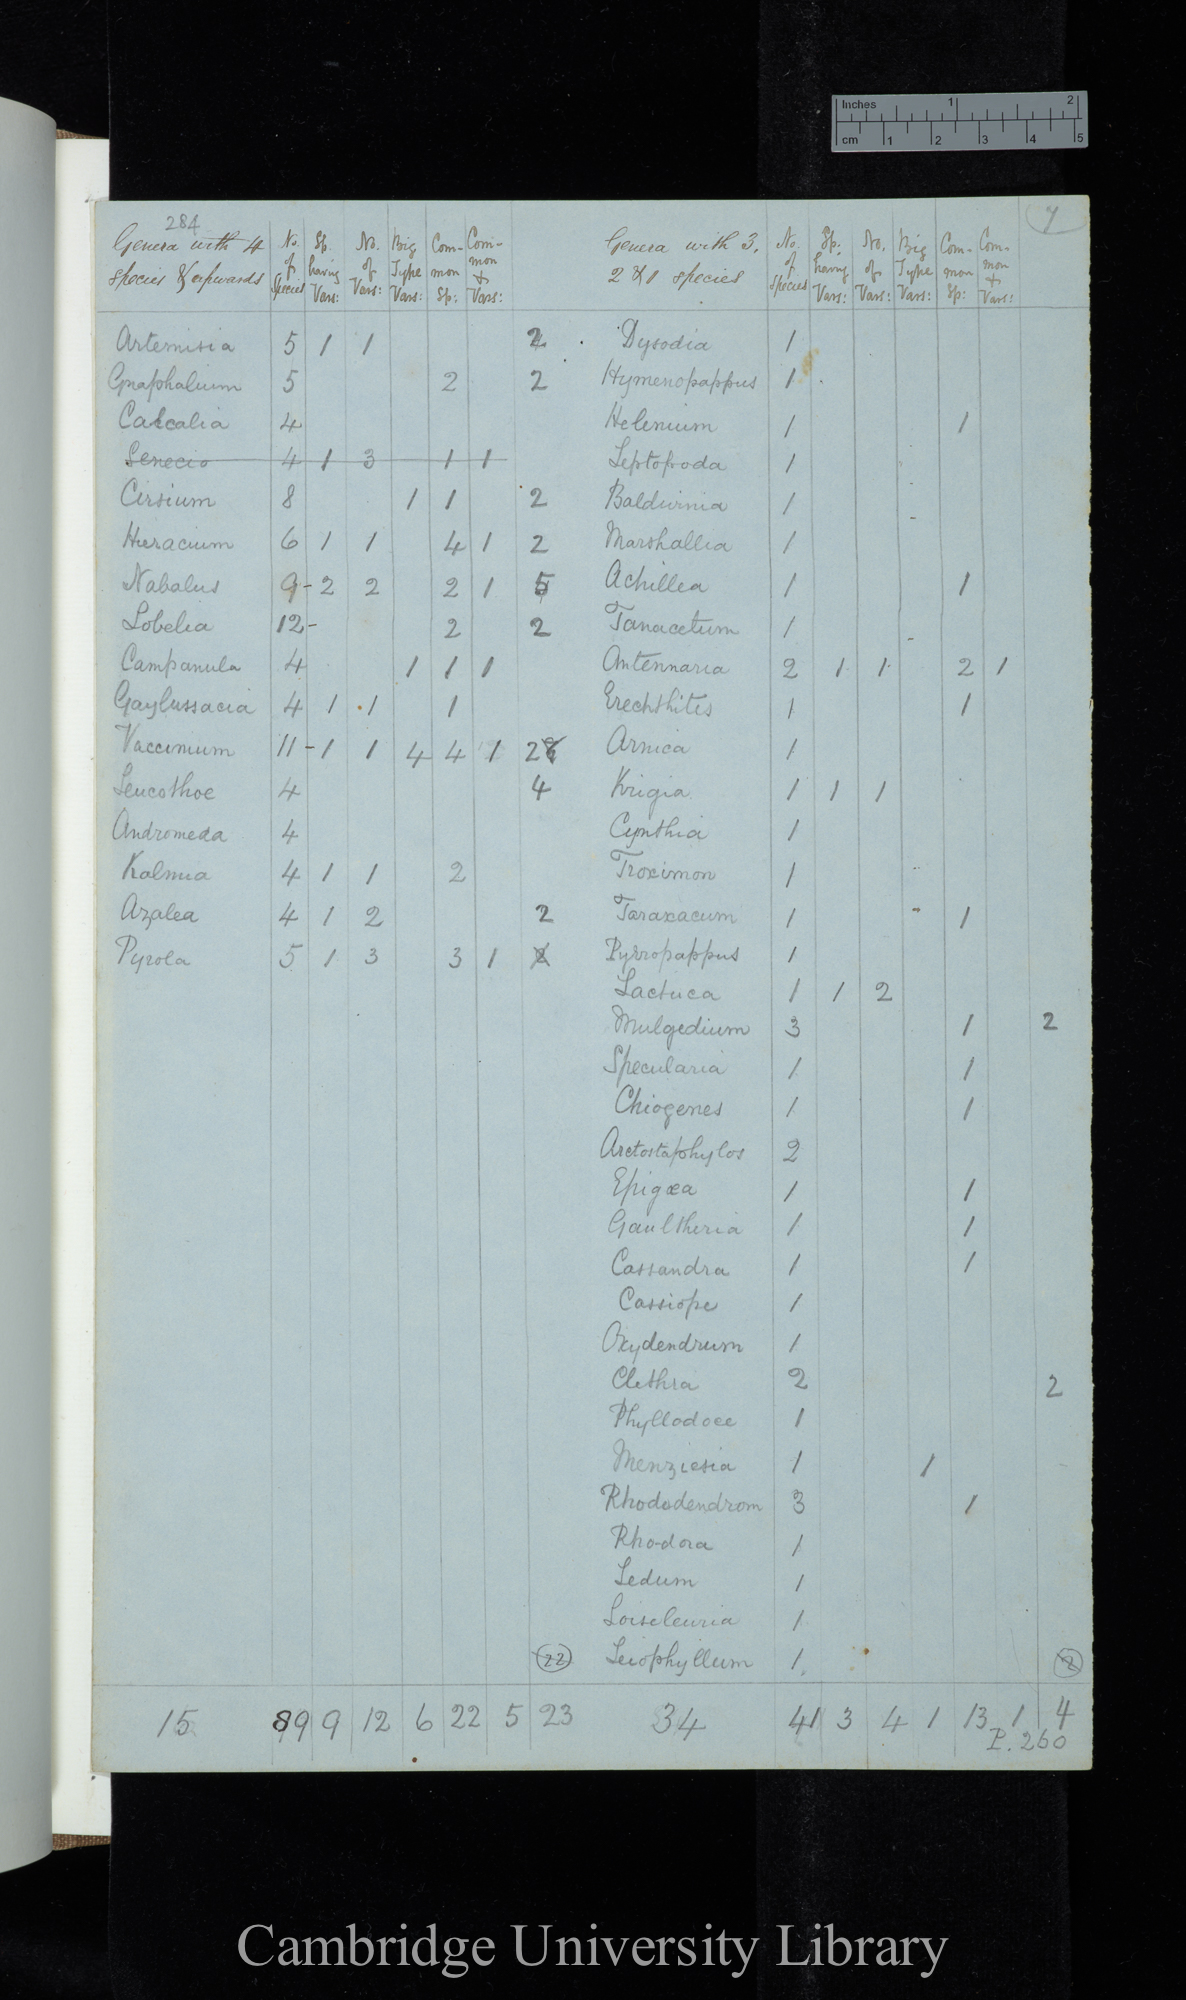 Inches 1 2
cm 1 2 3 4 5
284
7
Genera with 4 species & upwards | No. of Species | Sp. having Vars: | No. of Vars: | Big Type Vars: | Common Sp: | Common & Vars: | Genera with 3, 2 & 1 species | No. of Species | Sp: having Vars: | No. of Vars: | Big Type Vars: | Common Sp: | Common & Vars:
Artemisia 5 1 1 2 Dysodia 1
Gnaphalium 5 2 2 Hymenopappus 1
Cacalia 4 Helenium 1 1
Senecio 4 1 3 1 1 Leptopoda 1
Cirsium 8 1 1 2 Balduinia 1
Hieracium 6 1 1 4 1 2 Marshallia 1
Nabalus 9-2 2 2 1 5 Achillea 1 1
Lobelia 12- 2 2 Tanacetum 1
Campanula 4 1 1 1 Antennaria 2 1 1 2 1
Gaylussacia 4 1 1 1 Erechthites 1 1
Vaccinium 11-1 1 4 4 1 2 Arnica 1
Leucothoe 4 4 Krigia 1 1 1
Andromeda 4 Cynthia 1
Kalmia 4 1 1 2 Troximon 1
Azalea 4 1 2 2 Taraxacum 1 1
Pyrola 5 1 3 3 1 2 Pyrropappus 1
Lactuca 1 1 2
Mulgedium 3 1 2
Specularia 1 1
Chiogenes 1 1
Arctostaphylos 2
Epigæa 1 1
Gaultheria 1 1
Cassandra 1 1
Cassiope 1
Oxydendrum 1
Clethra 2 2
Phyllodoce 1
Menziesia 1 1
Rhododendrom 3 1
Rhodora 1
Ledum 1
Loiseleuria 1
22 Leiophyllum 1 2
15 89 9 12 6 22 5 23 34 41 3 4 1 13 1 4
P. 260
Cambridge University Library